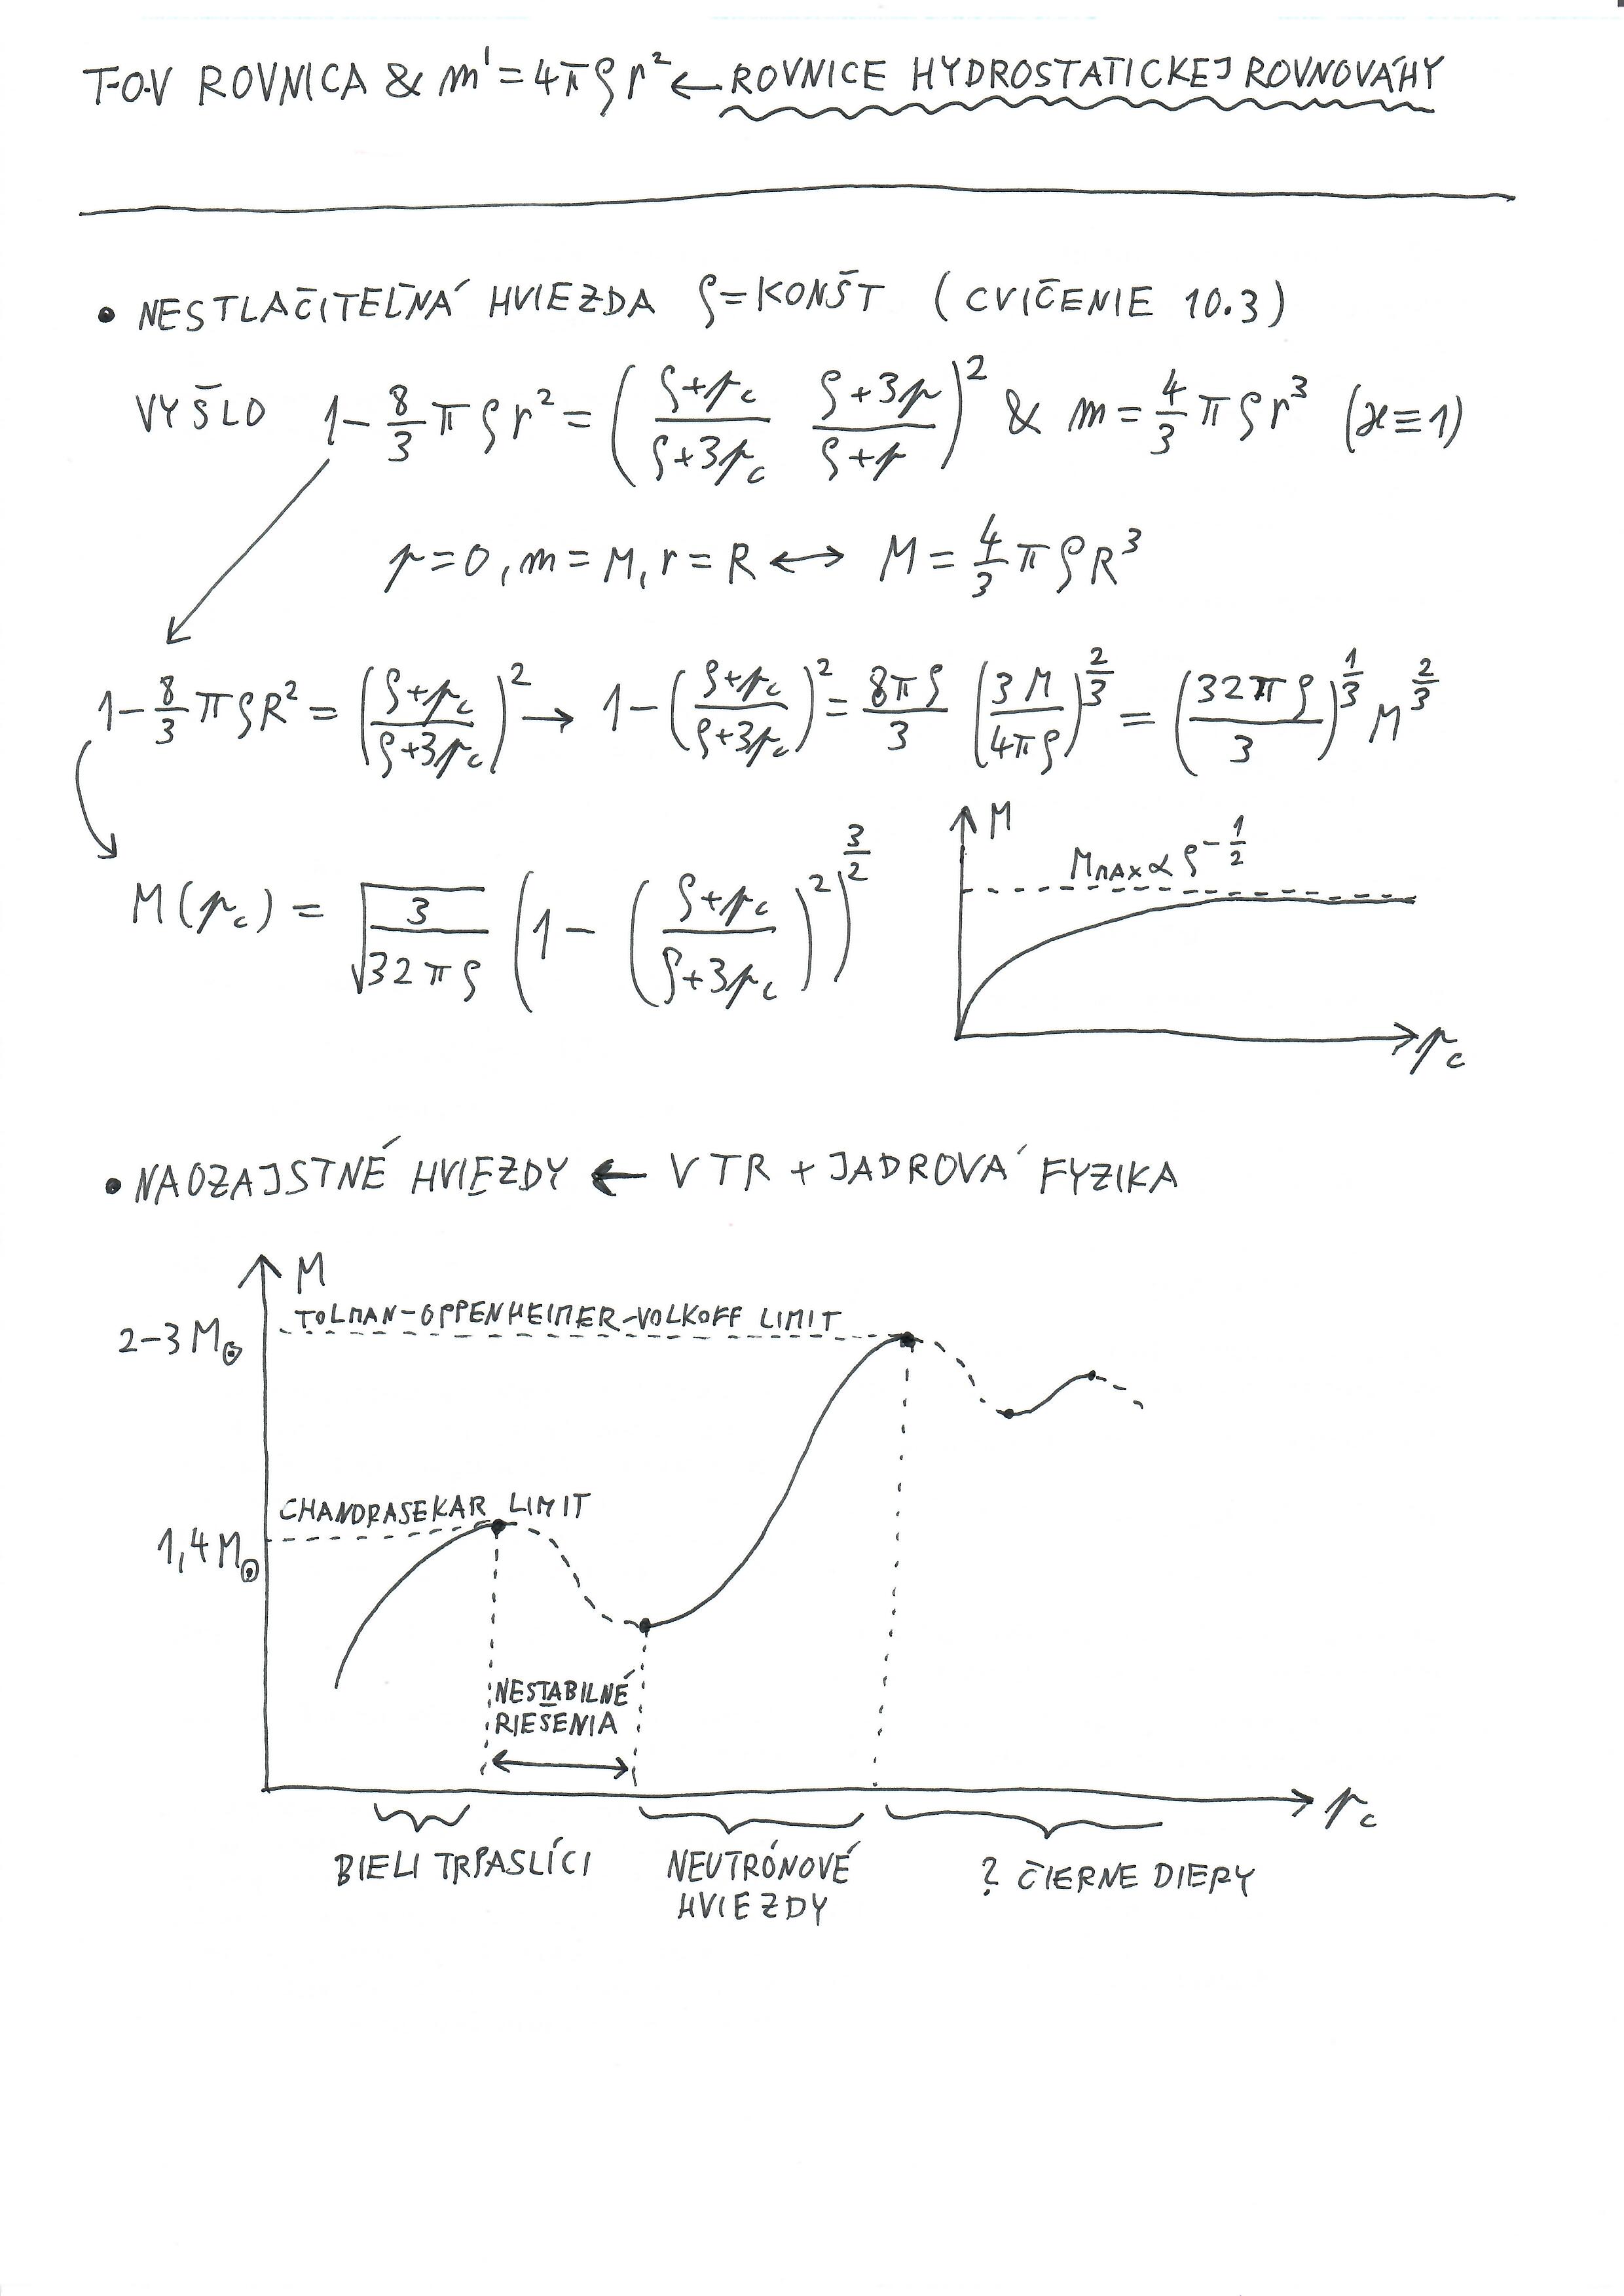 T-O-V ROVNICA & m' = 4πρr² ← ROVNICE HYDROSTATICKEJ ROVNOVÁHY
• NESTLAČITEĽNÁ HVIEZDA ρ = KONŠT (CVIČENIE 10.3)
VYŠLO 1 - 8/3 πρr² = ((ρ+p_c)/(ρ+3p_c) (ρ+3p)/(ρ+p))² & m = 4/3 πρr³ (ϰ ≡ 1)
p = 0, m = M, r = R ↔ M = 4/3 πρR³
1 - 8/3 πρR² = ((ρ+p_c)/(ρ+3p_c))² → 1 - ((ρ+p_c)/(ρ+3p_c))² = 8πρ/3 (3M/4πρ)^(2/3) = (32πρ/3)^(1/3) M^(2/3)
M(p_c) = √(3/(32πρ)) (1 - ((ρ+p_c)/(ρ+3p_c))²)^(3/2)
M
M_MAX ∝ ρ^(-1/2)
p_c
• NAOZAJSTNÉ HVIEZDY ← VTR + JADROVÁ FYZIKA
M
TOLMAN-OPPENHEIMER-VOLKOFF LIMIT
2-3 M⊙
CHANDRASEKAR LIMIT
1,4 M⊙
NESTABILNÉ
RIEŠENIA
p_c
BIELI TRPASLÍCI
NEUTRÓNOVÉ
HVIEZDY
? ČIERNE DIERY